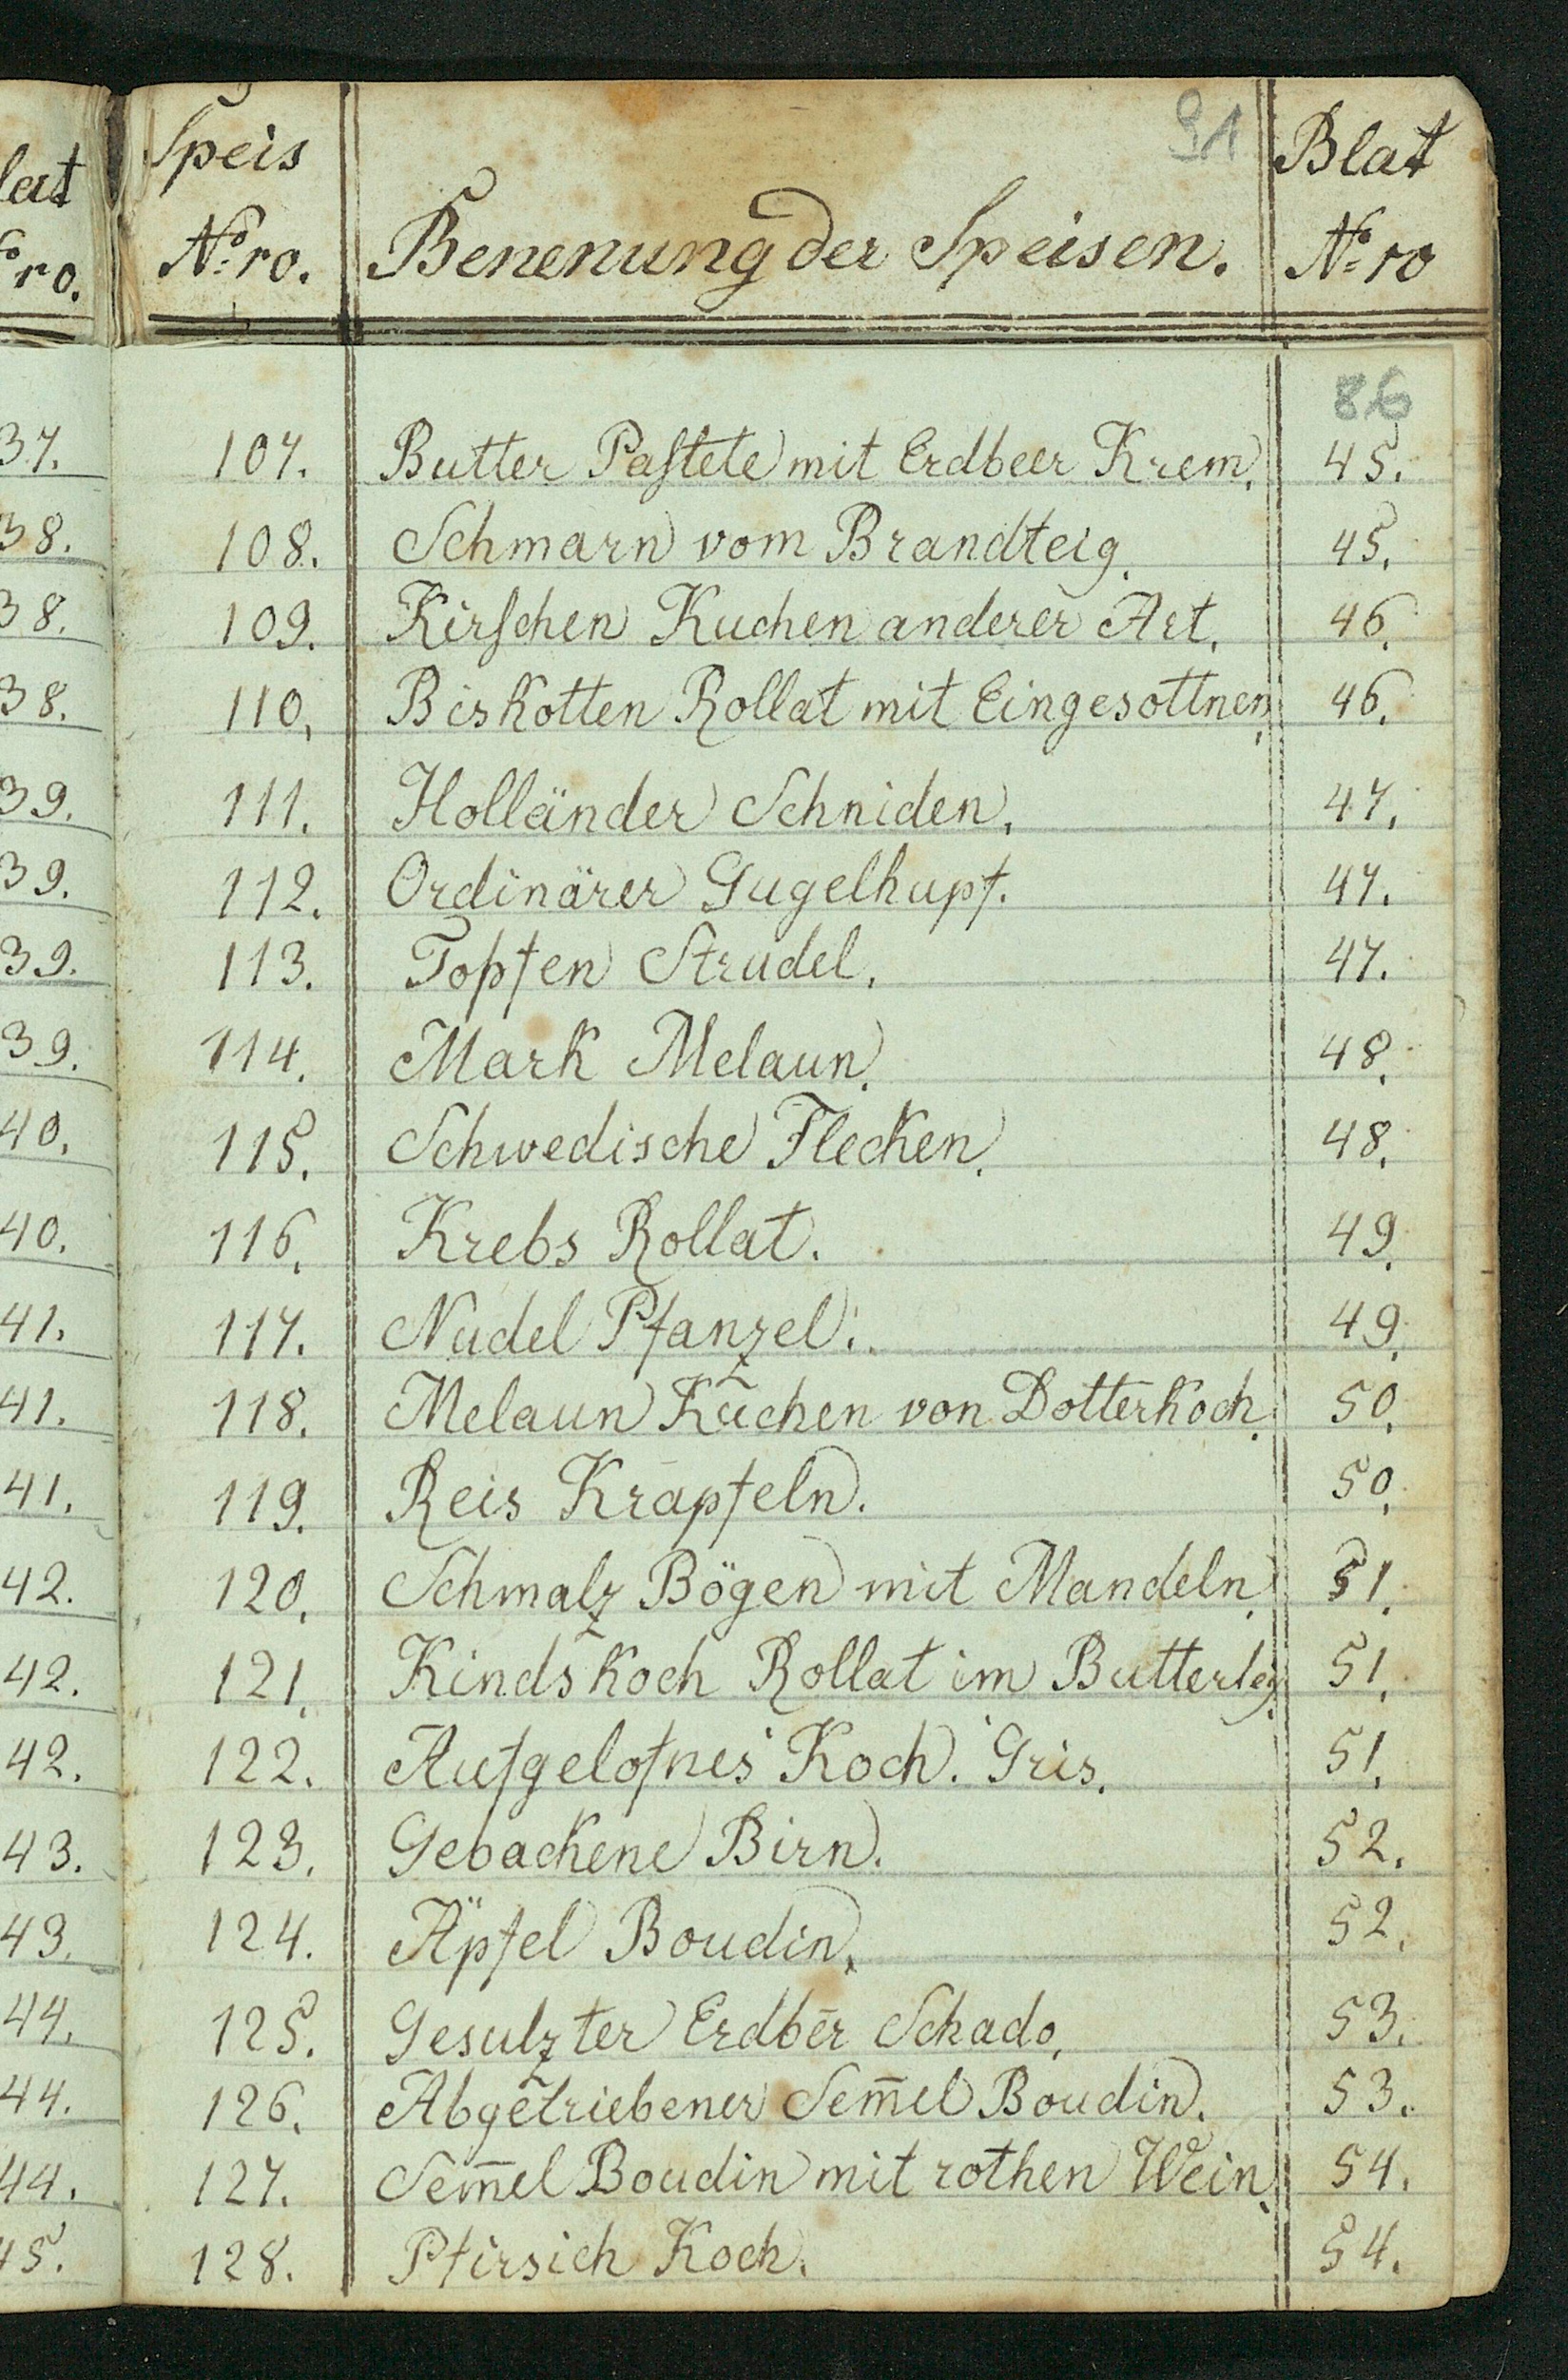 lat
ro.
37.
38.
38.
38.
39.
39.
39.
39.
40.
40.
41.
41.
41.
42.
42.
42.
43.
43.
44.
44.
44.
45.
91
Speis Blat
N:ro. Benenung der Speisen. N:ro
86
107. Butter Paſtete mit Erdbeer Krem. 45.
108. Schmarn vom Brandteig. 45.
109. Kirſchen Kuchen anderer Art. 46.
110. Biskotten Rollat mit Eingesottnen. 46.
111. Holländer Schniden. 47.
112. Ordinärer Gugelhupf. 47.
113. Topfen Strudel. 47.
114. Mark Melaun. 48.
115. Schwedische Flecken. 48.
116. Krebs Rollat. 49.
117. Nudel Pfanzel. 49.
118. Melaun Kuchen von Dotterkoch. 50.
119. Reis Krapfeln. 50.
120. Schmalz Bögen mit Mandeln. 51.
121. Kinds Koch Rollat im Butterteg. 51.
122. Aufgelofnes Koch. Gris. 51.
123. Gebackene Birn. 52.
124. Äpfel Boudin. 52.
125. Gesulzter Erdbēr Schado. 53.
126. Abgetriebener Sem̄el Boudin. 53.
127. Sem̄el Boudin mit rothen Wein. 54.
128. Pfirsich Koch. 54.